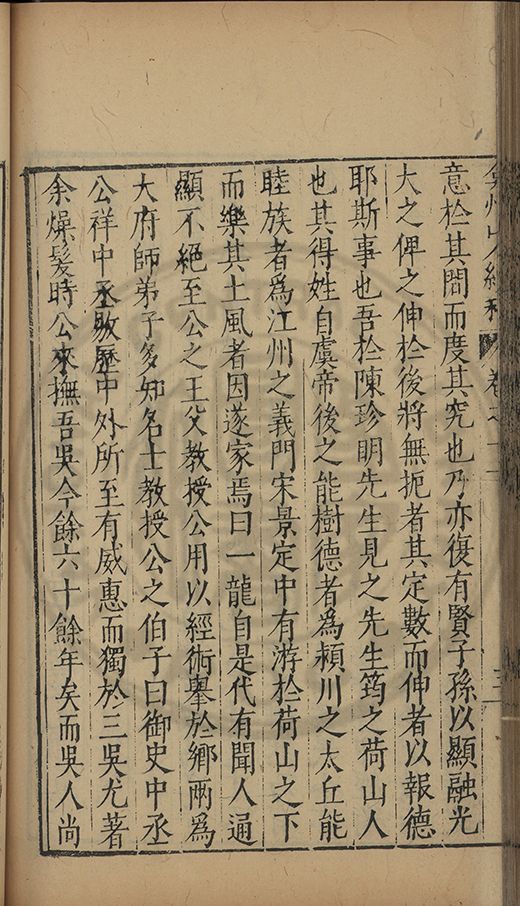 意於其間而度其究也乃亦復有賢子孫以顯融光
大之俾之伸於後將無扼者其定數而伸者以報德
耶斯事也吾於陳珍明先生見之先生筠之荷山人
也其得姓自虞帝後之能樹德者為潁川之太丘能
睦族者為江州之義門宋景定中有游於荷山之下
而樂其土風者因遂家焉曰一龍自是代有聞人通
顯不絕至公之王父教授公用以經術舉於鄉兩為
大府師弟子多知名士教授公之伯子曰御史中丞
公祥中丞敭歷中外所至有威惠而獨於三吳尤著
余燥髮時公來撫吾吳今餘六十餘年矣而吳人尚